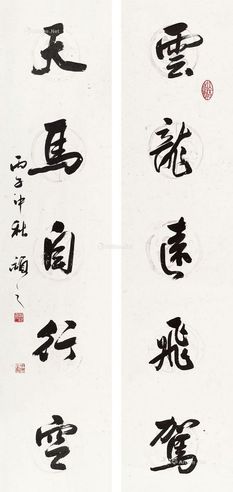 雲龍遠飛駕
天馬自行空
丙子仲秋